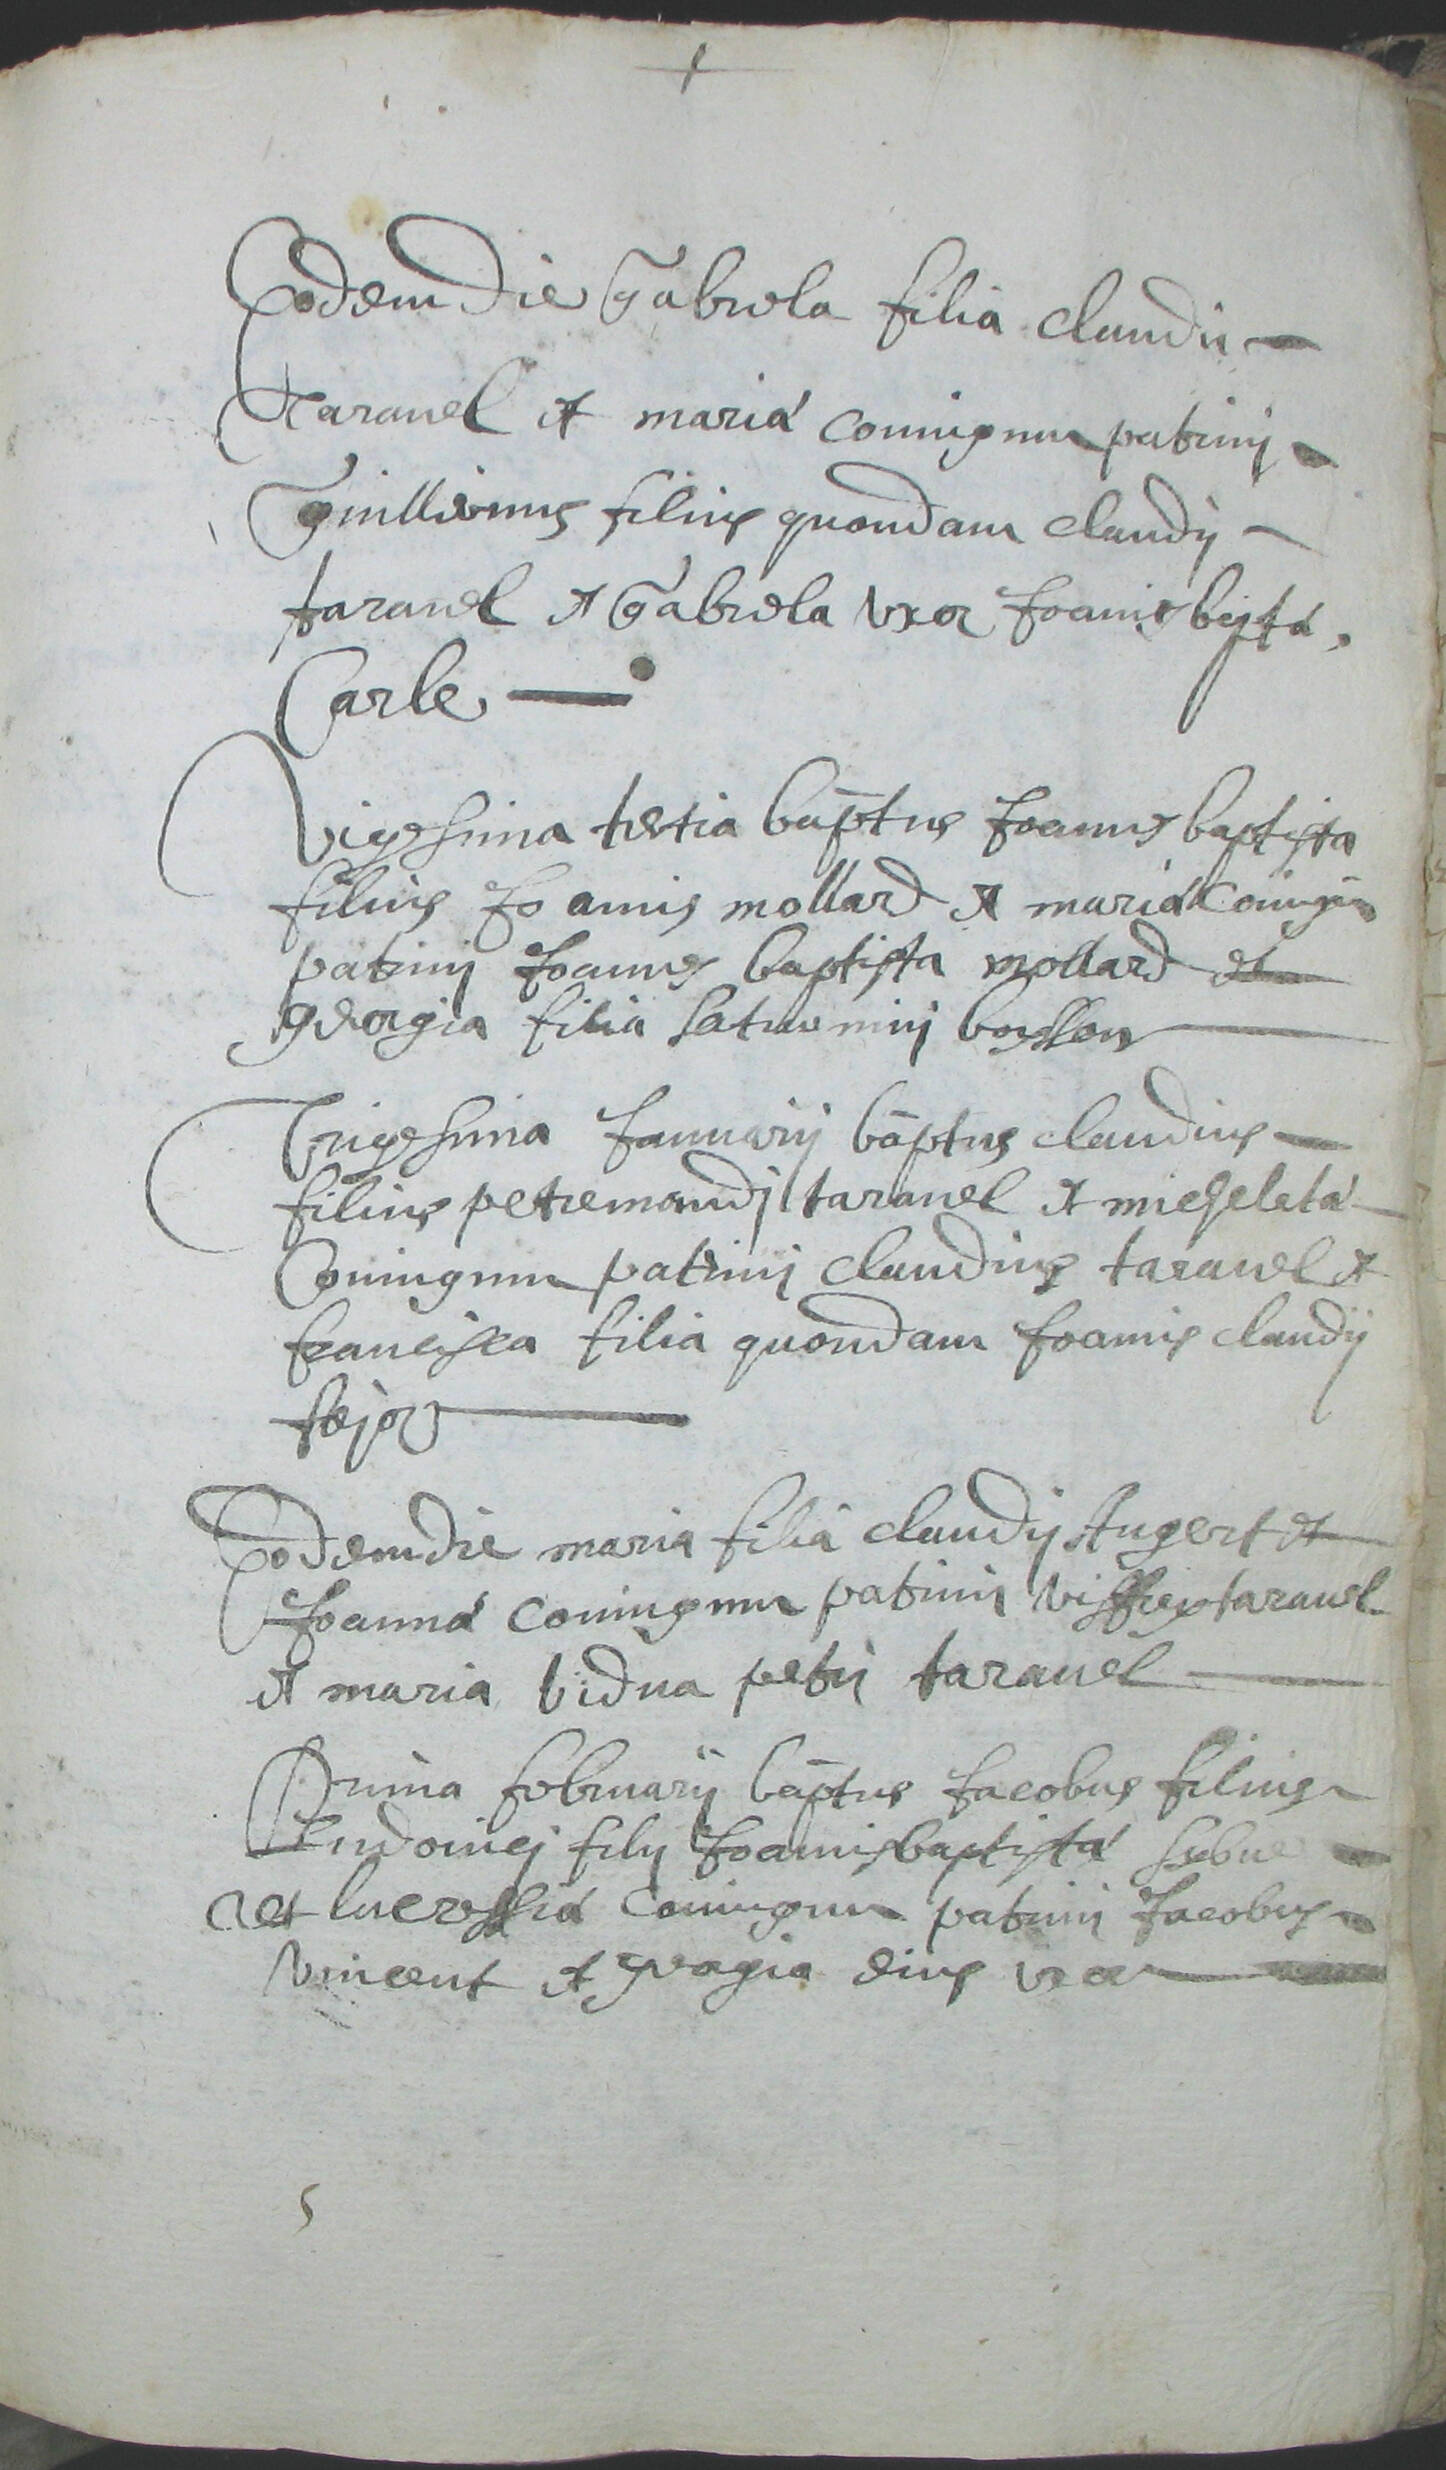 Eodem die Gabriela filia claudii
taravel et maria coniugum patrini
guillielmus filius quondam claudij
taravel et Gabriela uxor Joannis bapta
Carle
Vigesima tertia baptus Joannes baptista
filius Joannis mollard et maria coniugu
patrini Joannes baptista mollard et
georgia filia saturnini bosson
Trigesima Januarij baptus claudius
filius petremandj taravel et micheleta
Coniugum patrini claudius taravel et
francisca filia quondam Joannis claudij
Eodem die maria filia claudij Augert et
Joanna coniugum patrini taravel
et maria vidua petri taravel
Prima februarij baptus Jacobus filius
Ludovicj filij Joannis baptista
et lucressia coniugum patrini Jacobus
vincent et georgia eius uxor
5